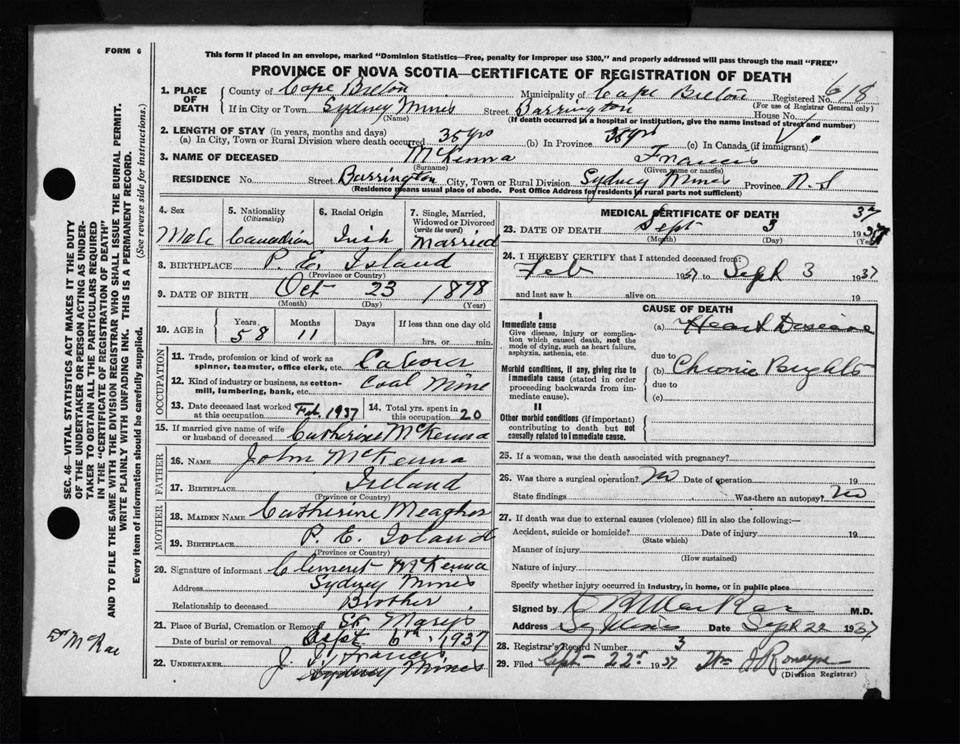 FORM 6
This form if placed in an envelope, marked "Dominion Statistics—Free, penalty for improper use $300," and properly addressed will pass through the mail "FREE"
PROVINCE OF NOVA SCOTIA—CERTIFICATE OF REGISTRATION OF DEATH
1. PLACE OF DEATH County of Cape Breton Municipality of Cape Breton Registered No. 618
(For use of Registrar General only)
If in City or Town Sydney Mines Street Barrington House No.
(Name) (If death occurred in a hospital or institution, give the name instead of street and number)
2. LENGTH OF STAY (in years, months and days)
(a) In City, Town or Rural Division where death occurred 35 yrs (b) In Province 35 yrs (c) In Canada (if immigrant)
3. NAME OF DECEASED McKenna Francis
(Surname) (Given name or names)
RESIDENCE No. Street Barrington City, Town or Rural Division Sydney Mines Province N. S
(Residence means usual place of abode. Post Office Address for residents in rural parts not sufficient)
4. Sex Male
5. Nationality (Citizenship) Canadian
6. Racial Origin Irish
7. Single, Married, Widowed or Divorced (write the word) Married
8. BIRTHPLACE P. E. Island
(Province or Country)
9. DATE OF BIRTH Oct 23 1878
(Month) (Day) (Year)
10. AGE in Years 58 Months 11 Days If less than one day old hrs. or min.
OCCUPATION
11. Trade, profession or kind of work as spinner, teamster, office clerk, etc.
12. Kind of industry or business, as cotton-mill, lumbering, bank, etc. Coal Mine
13. Date deceased last worked at this occupation Feb. 1937
14. Total yrs. spent in this occupation 20
15. If married give name of wife or husband of deceased Catherine McKenna
FATHER
16. NAME John McKenna
17. BIRTHPLACE Ireland
(Province or Country)
MOTHER
18. MAIDEN NAME Catherine Meagher
19. BIRTHPLACE P. E. Island
(Province or Country)
20. Signature of informant Clement McKenna
Address Sydney Mines
Relationship to deceased Brother
21. Place of Burial, Cremation or Removal St. Marys
Date of burial or removal Sept 6th, 1937
22. UNDERTAKER J. Francis
Sydney Mines
MEDICAL CERTIFICATE OF DEATH
23. DATE OF DEATH Sept 3 1937
(Month) (Day) (Year)
24. I HEREBY CERTIFY that I attended deceased from:
Feb 1937 to Sept 3 1937
and last saw h alive on 19
CAUSE OF DEATH
I
Immediate cause
Give disease, injury or complication which caused death, not the mode of dying, such as heart failure, asphyxia, asthenia, etc.
(a) Heart Disease
due to
Morbid conditions, if any, giving rise to immediate cause (stated in order proceeding backwards from immediate cause).
(b) Chronic Brights
due to
(c)
II
Other morbid conditions (if important) contributing to death but not causally related to immediate cause.
25. If a woman, was the death associated with pregnancy?
26. Was there a surgical operation? No Date of operation 19
State findings Was there an autopsy? No
27. If death was due to external causes (violence) fill in also the following:—
Accident, suicide or homicide? Date of injury 19
(State which)
Manner of injury
(How sustained)
Nature of injury
Specify whether injury occurred in industry, in home, or in public place
Signed by M.D.
Address Sy Mines Date Sept 22 1937
28. Registrar's Record Number 3
29. Filed Sept 22nd 1937
(Division Registrar)
SEC. 46—VITAL STATISTICS ACT MAKES IT THE DUTY
OF THE UNDERTAKER OR PERSON ACTING AS UNDER-
TAKER TO OBTAIN ALL THE PARTICULARS REQUIRED
IN THE "CERTIFICATE OF REGISTRATION OF DEATH"
AND TO FILE THE SAME WITH THE DIVISION REGISTRAR WHO SHALL ISSUE THE BURIAL PERMIT.
WRITE PLAINLY WITH UNFADING INK. THIS IS A PERMANENT RECORD.
Every item of information should be carefully supplied. (See reverse side for instructions.)
Dr McRae